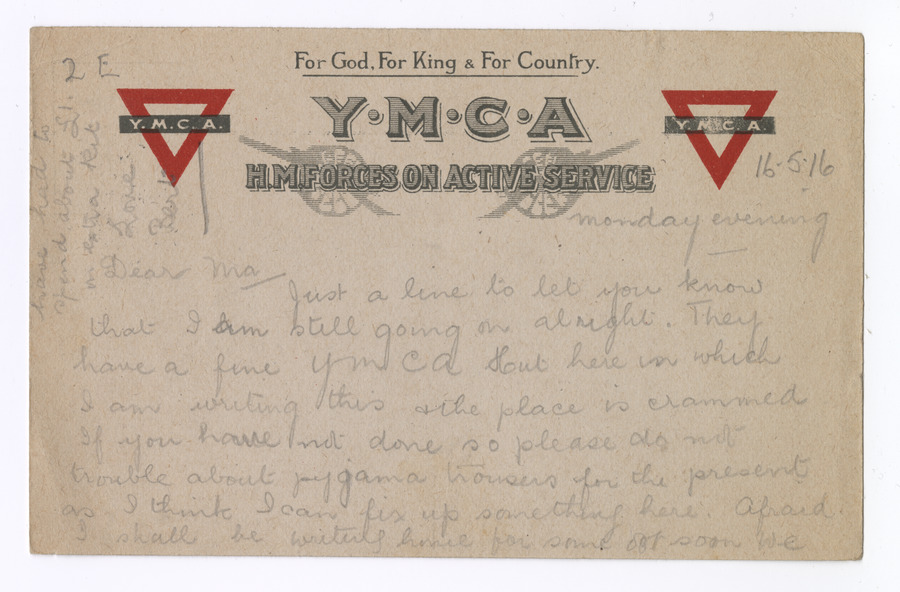 2 E
For God, For King & For Country.
Y·M·C·A
Y.M.C.A.
Y.M.C.A.
H.M. FORCES ON ACTIVE SERVICE
16·5·16
monday evening
Dear Ma
Just a line to let you know
that I am still going on alright. They
have a fine YMCA Hut here in which
I am writing this & the place is crammed
If you have not done so please do not
trouble about pygama trousers for the present
as I think I can fix up something here. Afraid
I shall be writing home for some soon We
have had to
spend about £1.
in extra kit
Love